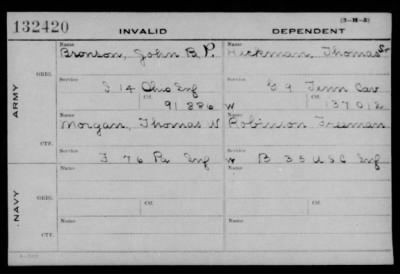 (3-M-5)
132420 INVALID DEPENDENT
Name Name
Bronson, John B. P. Hickman, Thomas Sr
ARMY
ORIG.
Service Service
I 14 Ohio Inf G 9 Tenn Cav
Ctf. Ctf.
91 886 W 137 012
Name Name
Morgan, Thomas W Robinson Freeman
CTF.
Service Service
F 76 Pa Inf W B 35 U S C Inf
NAVY
ORIG.
Name Name
Ctf. Ctf.
CTF.
Name Name